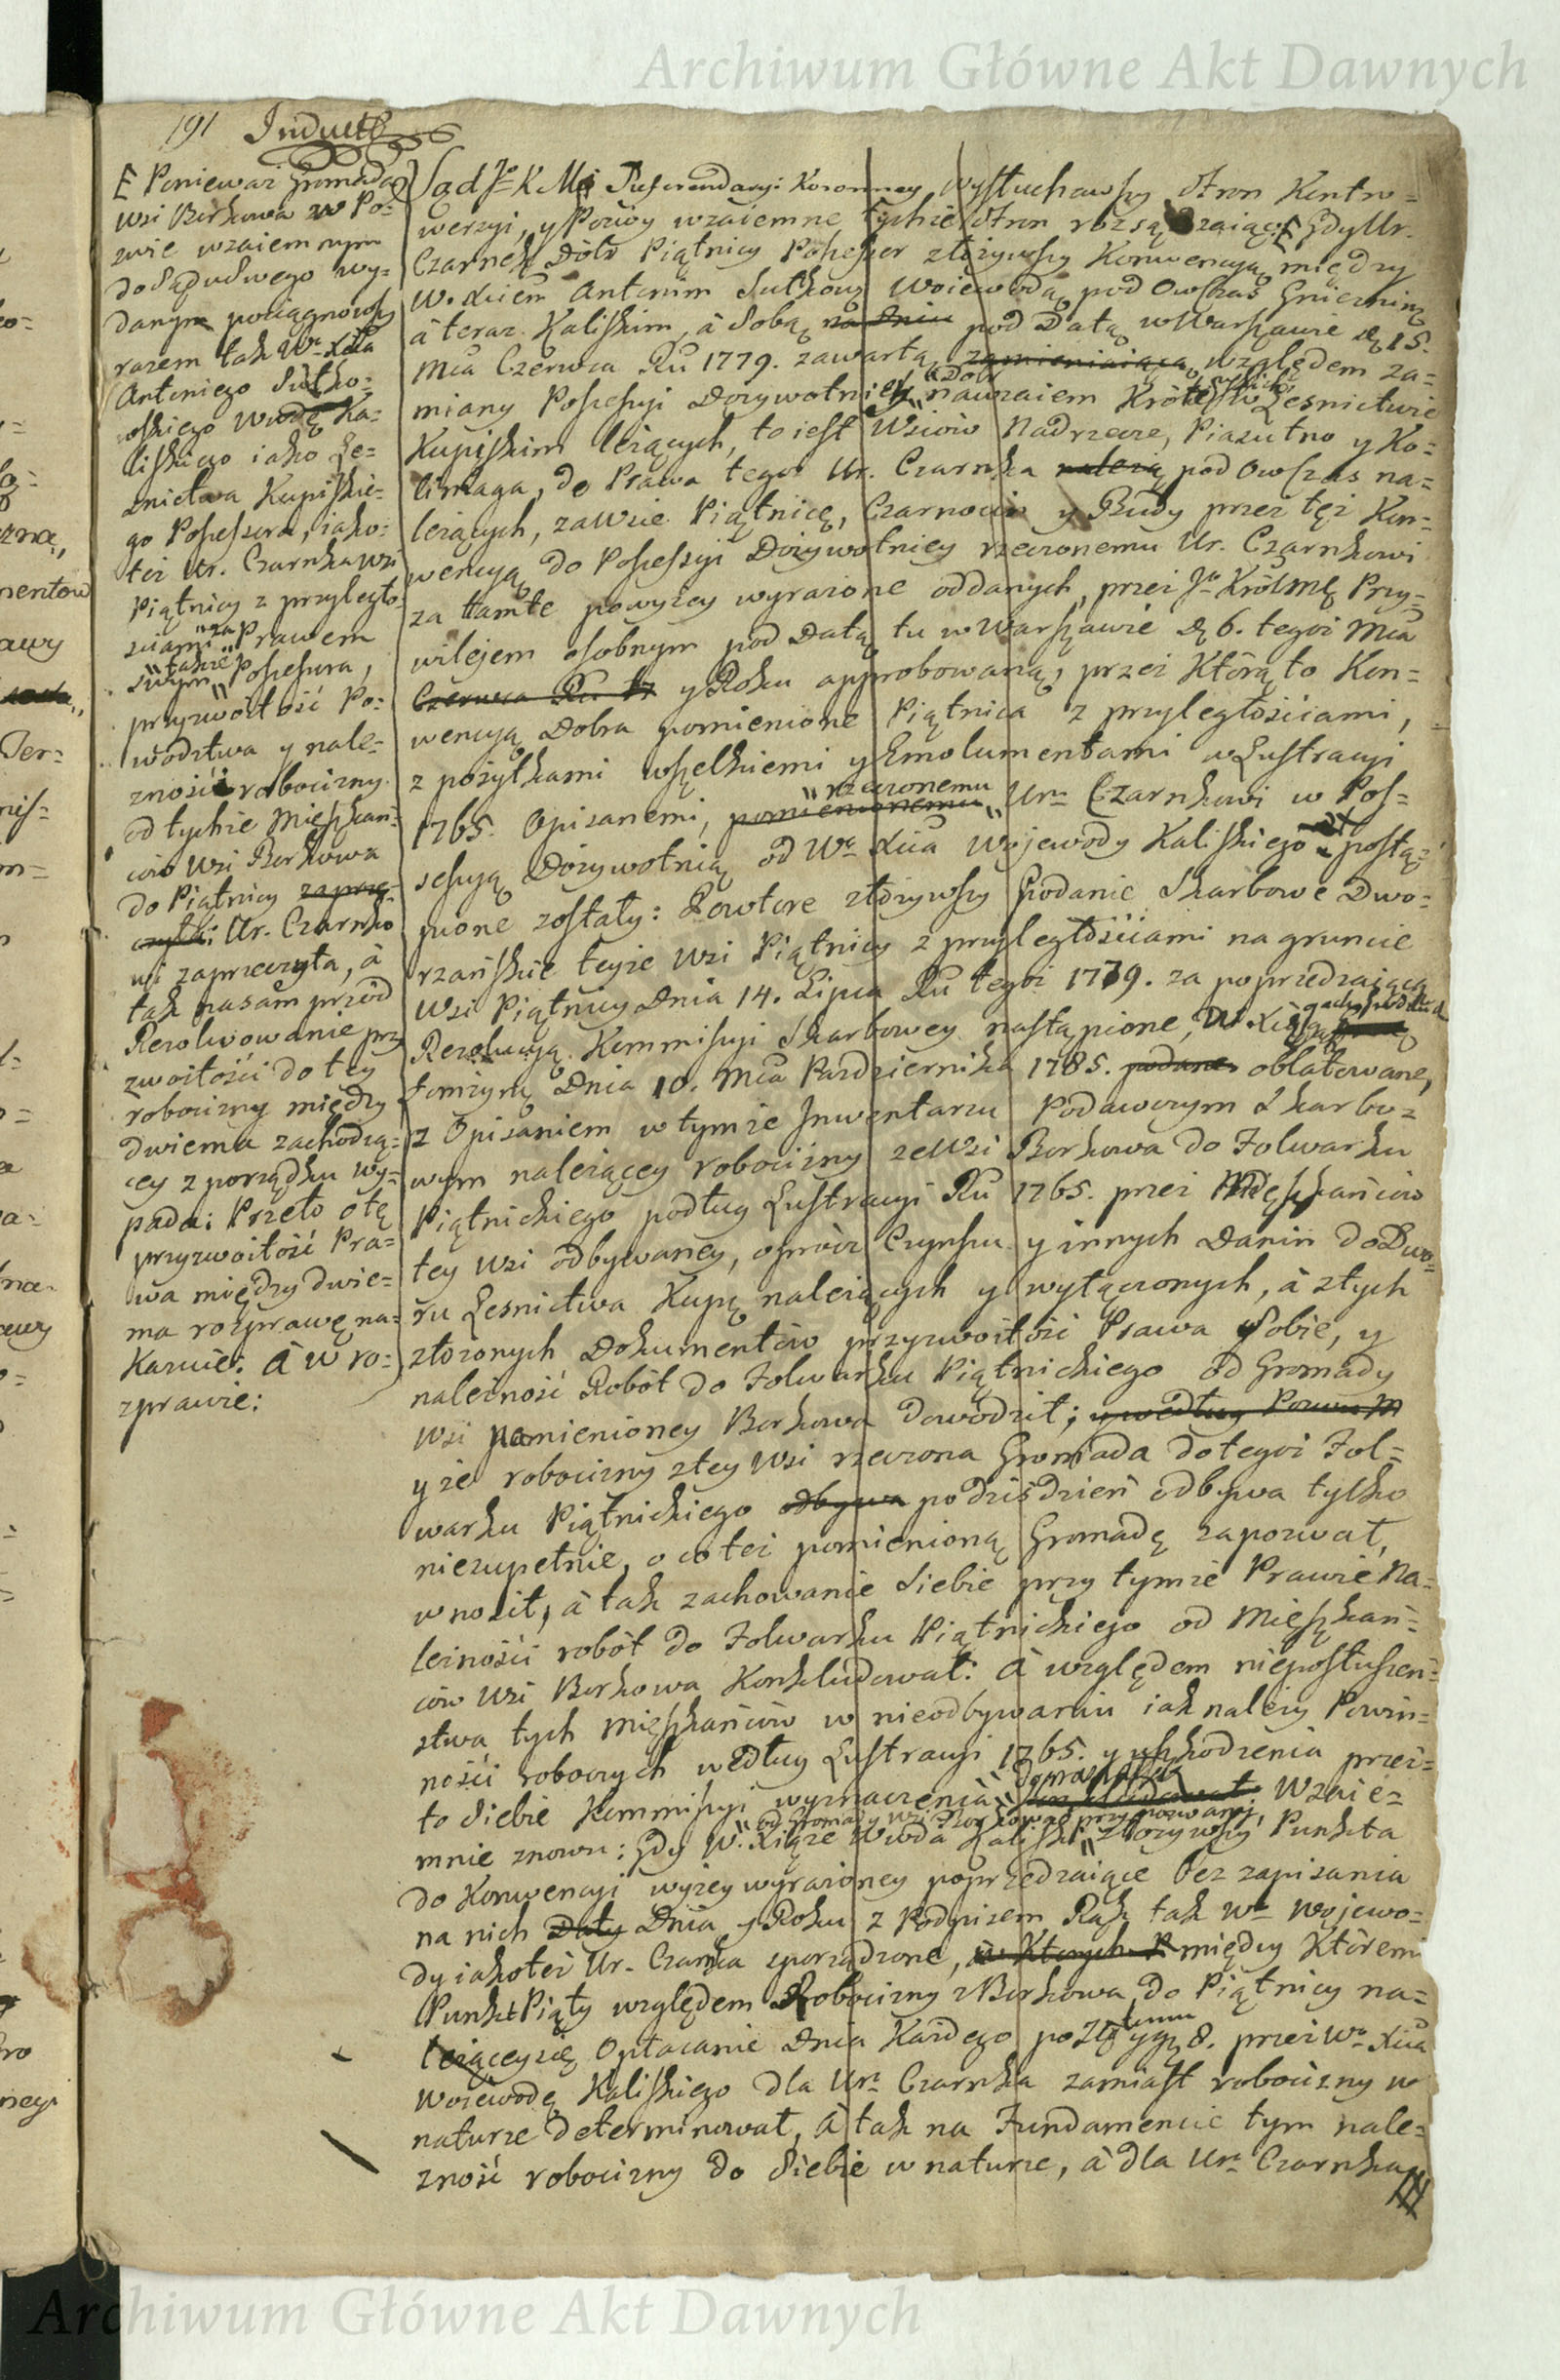 Archiwum Główne Akt Dawnych
191 Inducta
E Ponieważ Gromada
Wsi Borkowa w Po=
zwie wzaiemnym
do Sądu Swego wy=
danym pociągnowszy
razem tak We Xcia
Antoniego Sułko=
wskiego Wwdę Ka=
liskiego iako Le=
znictwa Kupiskie=
go Possessora, iako=
też Ur. Czarnka wsi
Piątnicy z przyległo=
sciami "za" Prawem
swym "takze" Possesora,
przyzwoitość Po=
wodztwa y nale=
zności robocizny
od tychże Mięszkań=
ców Wsi Borkowa
do Piątnicy zaprzę=
czyła: Ur. Czarnko
wi zaprzeczyła, à
tak nasam przód
Rezolwowanie przy
zwoitości do tey
robocizny między
dwiema zachodzą=
cey z porządku wy=
pada: Przeto o tę
przyzwoitość Pra=
wa między dwie=
ma rozprawę na=
kazuie: à w ro=
zprawie:
Sąd Jo K Mci Referendaryi Koronney Wysłuchawszy Stron Kontro=
wersyi, y Pozwy wzaiemne tychże Stron rozsądzaiąc, E Gdy Ur.
Czarnek Dóbr Piątnicy Possessor złożywszy Konwencyą między
W. Xciem Antonim Sułkows Woiewodą pod Owczas Gnieznins
à teraz Kaliskim, à Sobą na dniu pod Datą w Warszawie d. 15.
Mca Czerwca Ru 1779. zawartą, zamieniaiącą, względem za=
miany Possessyi Dożywotniey "Dóbr" nawzaiem Królewskich w Lesnictwie
Kupiskim leżących, to iest Wsiów Nadrzecze, Piasutno y Ko=
limaga, do Prawa tego Ur. Czarnka należą pod Owczas na=
leżących, za Wsie Piątnicę, Czarnocin y Budy przez tęż Kon=
wencyą do Possessyi Dożywotniey rzeczonemu Ur. Czarnkowi
za tamte powyżey wyrażone oddanych, przez Jo Królmę Przy=
wilejem osobnym pod Datą tu w Warszawie d. 6. tegoż Mca
Czerwca Ru 17 y Roku approbowaną, przez Którą to Kon=
wencyą Dobra pomienione Piątnica z przyległościami,
z pożytkami wszelkiemi y Emolumentami w Lustracyi
1765. Opisanemi, pomienionemu "rzeczonemu" Urmu Czarnkowi w Pos=
sessyą Dożywotnią od We Xcia Wojewody Kaliskiego postą=
pione zostały: Powtore złożywszy Podanie Skarbowe Dwo=
rzańskie teyże Wsi Piątnicy z przyległościami na gruncie
Wsi Piątnicy Dnia 14. Lipca Ru tegoż 1779. za poprzedzaiącą
Rezolucyą Kommissyi Skarbowey nastąpione, w Xięgach Grodzkich
Łomżyns Dnia 10. Mca Pazdziernika 1785. podane oblatowane,
z Opisaniem w tymże Inwentarzu Podawczym Skarbo=
wym należącey robocizny ze Wsi Borkowa do Folwarku
Piątnickiego podług Lustracyi Ru 1765. przez Mięszkańców
tey Wsi odbywaney, oprócz Czynszu y innych Danin do Dwo=
ru Lesnictwa Kupis należących y wyłączonych, à z tych
złożonych Dokumentów przyzwoitości Prawa Sobie, y
należność Robót do Folwarku Piątnickiego od Gromady
Wsi pomienioney Borkowa dowodził; y według Pozwu
y że robocizny z tey Wsi rzeczona Gromada do tegoż Fol=
warku Piątnickiego odbywa po dziś dzień odbywa tylko
niezupełnie, o co też pomienioną Gromadę zapozwał,
wnosił, à tak zachowanie Siebie przy tymże Prawie Na=
leżności robót do Folwarku Piątnickiego od Mięszkań=
ców Wsi Borkowa Konkludował: à względem nieposłuszeń=
stwa tych Mięszkańców w nieodbywaniu iak należy Powin=
ności roboczych według Lustracyi 1765. y uszkodzenia przez=
to Siebie Kommissyi wyznaczenia "dopraszał się" konkludował: Wzaie=
mnie znowu: Gdy W. Xiąże Wwda Kaliski "od Gromady Wsi Borkowa przypozwany," złożywszy Punkta
do Konwencyi wyżey wyrażoney poprzedzaiące bez zapisania
na nich Daty Dnia y Roku z Podpisem Rąk tak We Wojewo=
dy iakoteż Ur. Czarnka sporządzone, w Ktorych P między Któremi
Punkt Piąty względem Robocizny z Borkowa do Piątnicy na=
leżącey się Opłacanie Dnia Każdego po 8. przez We Xcia
Woiewodę Kaliskiego dla Ura Czarnka zamiast robocizny w
naturze determinował, à tak na Fundamencie tym nale=
zność robocizny do Siebie w naturze, à dla Ura Czarnka
Archiwum Główne Akt Dawnych